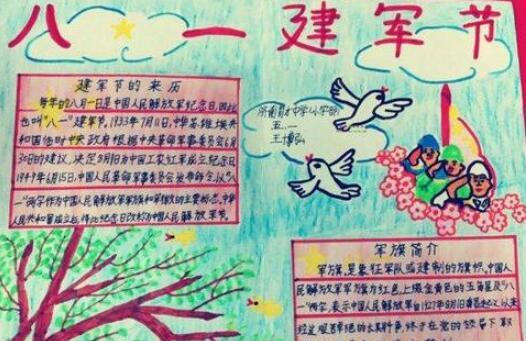 八一建军节
建军节的来历
每年的八月一日是中国人民解放军纪念日,因此
也叫"八一"建军节。1933年7月11日,中华苏维埃共
和国临时中央政府根据中央革命军事委员会6月
30日的建议,决定8月1日为中国工农红军成立纪念日
1949年6月15日,中国人民革命军事委员会发布命令,以"八
一"两字作为中国人民解放军军旗和军徽的主要标志。中华
人民共和国成立后,将此纪念日改称为中国人民解放军建军节。
济南育才中学(小学部)
五.一
王博弘
军旗简介
军旗,是象征军队或建制的旗帜。中国人
民解放军军旗为红色,上缀金黄色的五角星及"八一
"两字,表示中国人民解放军自1927年8月1日南昌起义以来
经过艰苦卓绝的长期斗争,终于在党的领导下取